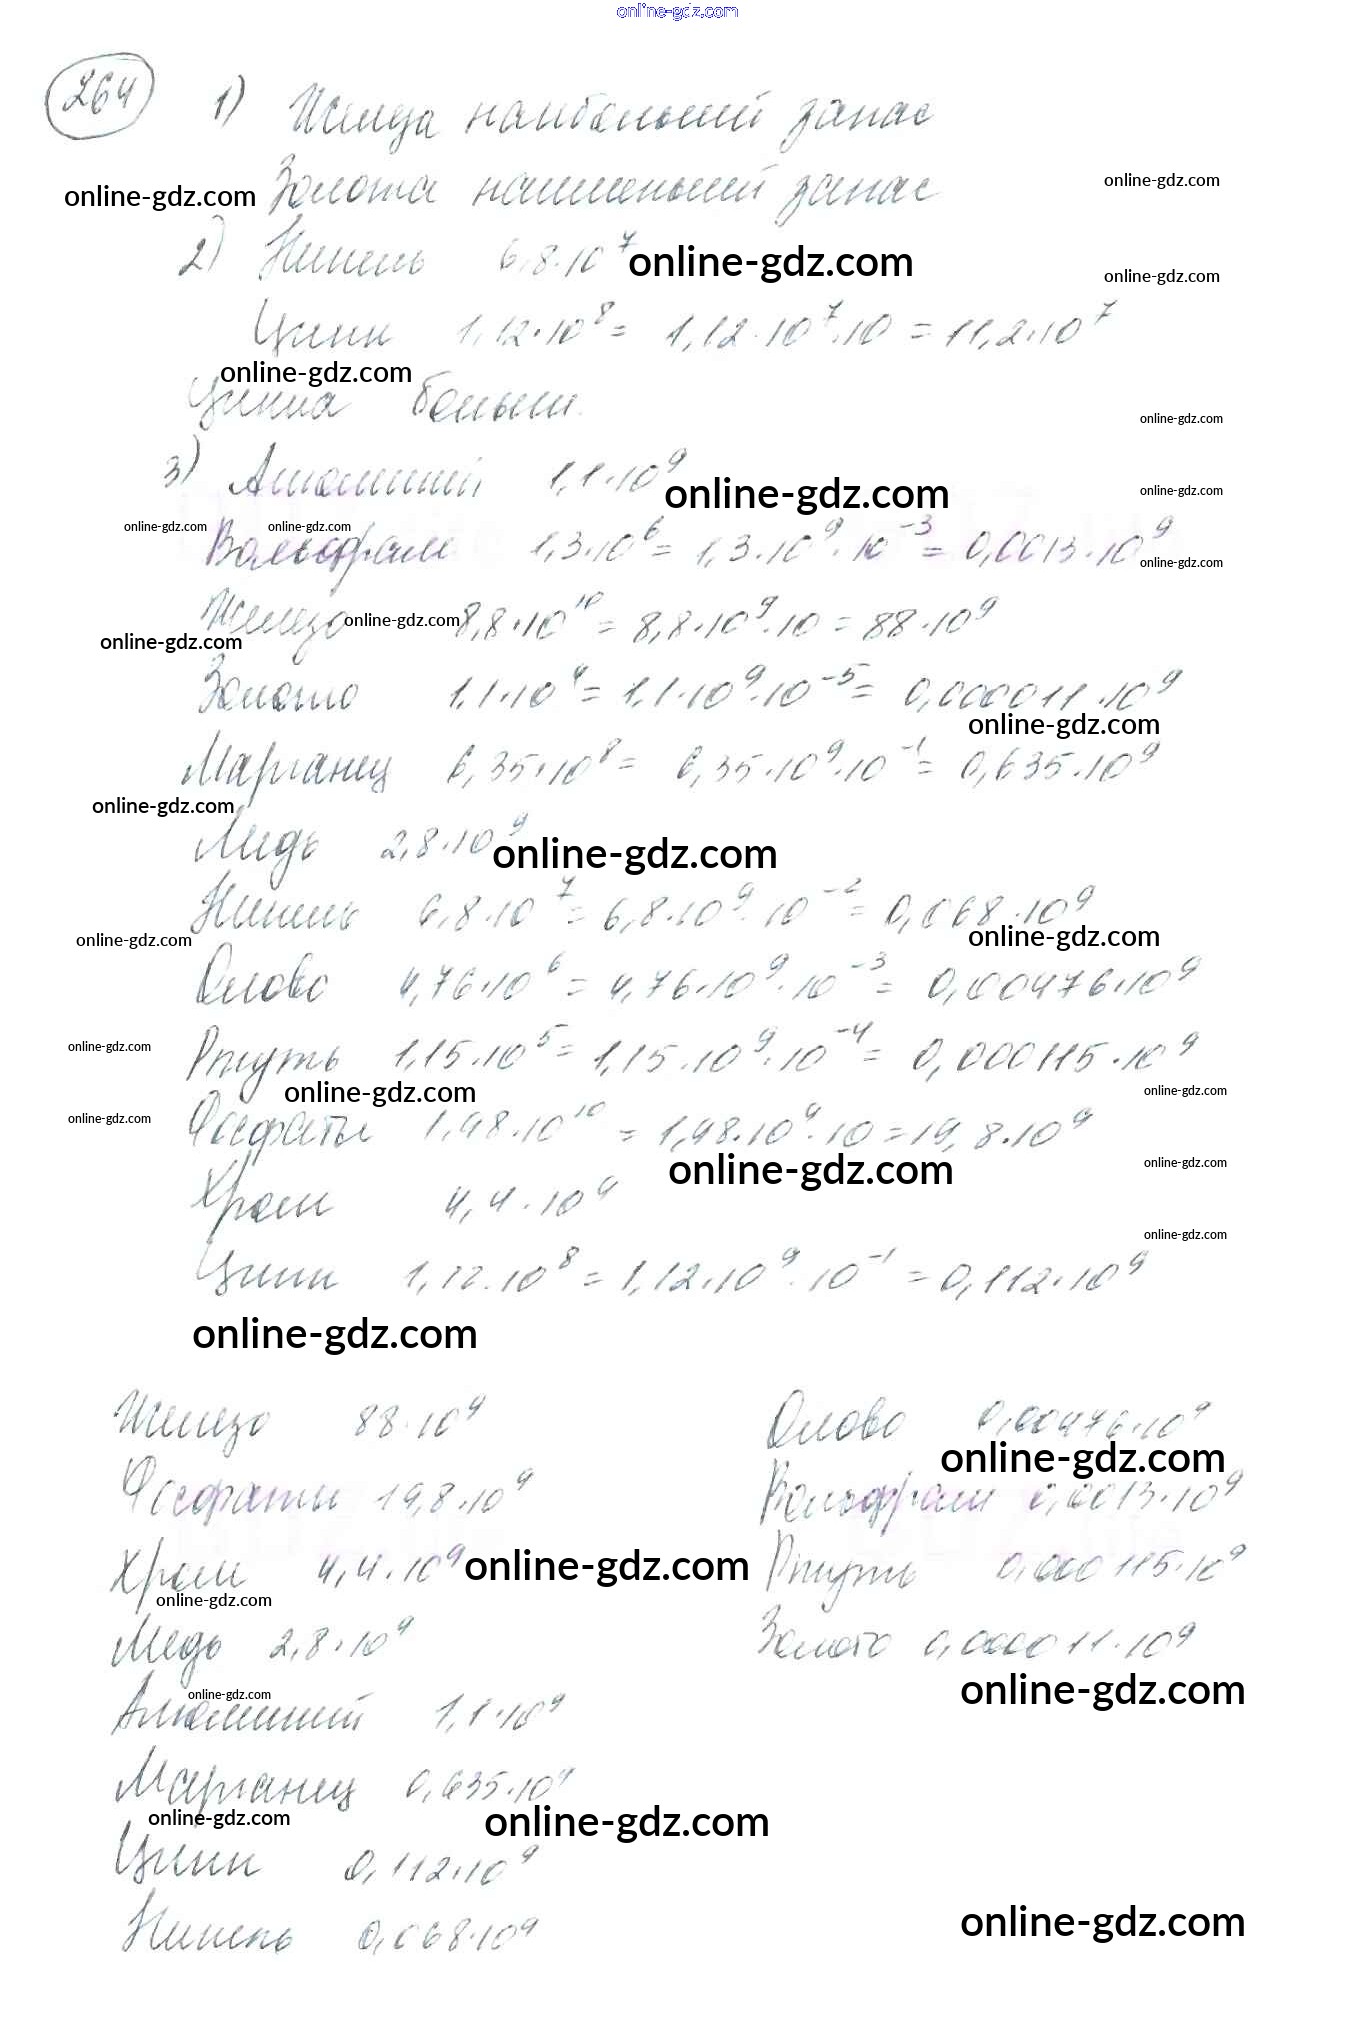 online-gdz.com
264 1) Железа наибольший запас
Золота наименьший запас
online-gdz.com
online-gdz.com
2) Никель 6,8·10⁷
online-gdz.com
online-gdz.com
Цинк 1,12·10⁸ = 1,12·10⁷·10 = 11,2·10⁷
online-gdz.com
Цинка больше.
online-gdz.com
3) Алюминий 1,1·10⁹
online-gdz.com
online-gdz.com
online-gdz.com
online-gdz.com
Вольфрам 1,3·10⁶ = 1,3·10⁹·10⁻³ = 0,0013·10⁹
online-gdz.com
Железо 8,8·10¹⁰ = 8,8·10⁹·10 = 88·10⁹
online-gdz.com
online-gdz.com
Золото 1,1·10⁴ = 1,1·10⁹·10⁻⁵ = 0,000011·10⁹
online-gdz.com
Марганец 6,35·10⁸ = 6,35·10⁹·10⁻¹ = 0,635·10⁹
online-gdz.com
Медь 2,8·10⁹
online-gdz.com
Никель 6,8·10⁷ = 6,8·10⁹·10⁻² = 0,068·10⁹
online-gdz.com
online-gdz.com
Олово 4,76·10⁶ = 4,76·10⁹·10⁻³ = 0,00476·10⁹
Ртуть 1,15·10⁵ = 1,15·10⁹·10⁻⁴ = 0,000115·10⁹
online-gdz.com
online-gdz.com
online-gdz.com
online-gdz.com
Фосфаты 1,98·10¹⁰ = 1,98·10⁹·10 = 19,8·10⁹
online-gdz.com
online-gdz.com
Хром 4,4·10⁹
online-gdz.com
Цинк 1,12·10⁸ = 1,12·10⁹·10⁻¹ = 0,112·10⁹
online-gdz.com
Железо 88·10⁹
Фосфаты 19,8·10⁹
Хром 4,4·10⁹
online-gdz.com
online-gdz.com
Медь 2,8·10⁹
online-gdz.com
Алюминий 1,1·10⁹
Марганец 0,635·10⁹
online-gdz.com
online-gdz.com
Цинк 0,112·10⁹
Никель 0,068·10⁹
Олово 0,00476·10⁹
online-gdz.com
Вольфрам 0,0013·10⁹
Ртуть 0,000115·10⁹
Золото 0,000011·10⁹
online-gdz.com
online-gdz.com